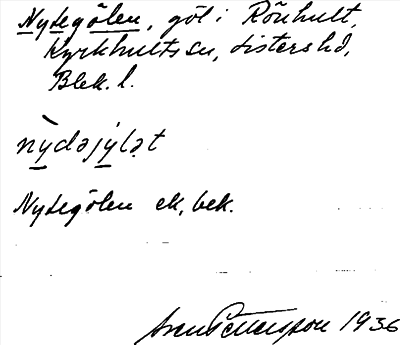 Nytegölen, göl i Rönhult,
Kyrkhults sn, Listers hd,
Blek. l.
nỳdəjylət
Nytegölen ek, bek.
Sven Pettersson 1936